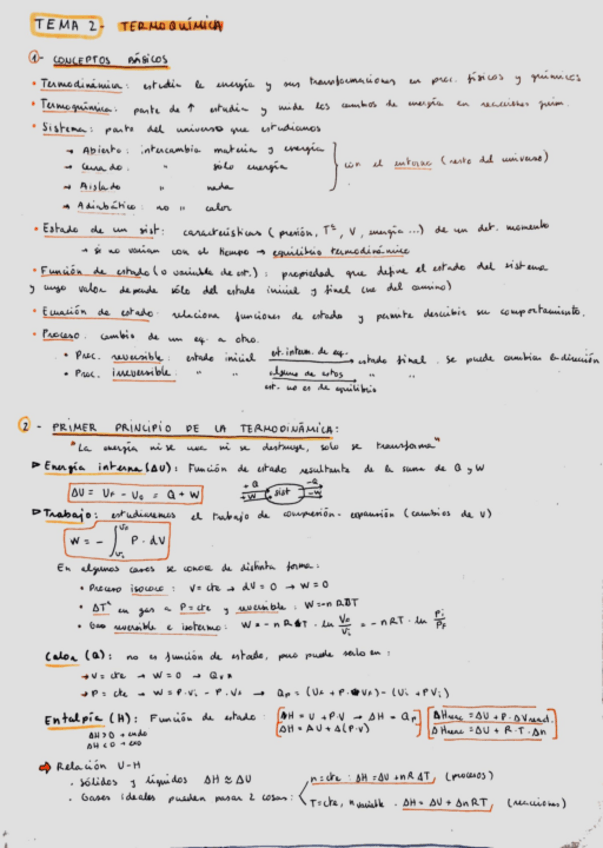 TEMA 2 - TERMOQUÍMICA
1- CONCEPTOS BÁSICOS
• Termodinámica: estudia la energía y sus transformaciones en proc. físicos y químicos
• Termoquímica: parte de ↑ estudia y mide los cambios de energía en reacciones quím.
• Sistema: parte del universo que estudiamos
→ Abierto: intercambia materia y energía
→ Cerrado: " sólo energía
→ Aislado " nada
→ Adiabático: no " calor
con el entorno (resto del universo)
• Estado de un sist: características (presión, Tª, V, energía ...) de un det. momento
→ si no varían con el tiempo → equilibrio termodinámico
• Función de estado (o variable de est.): propiedad que define el estado del sistema
y cuyo valor depende sólo del estado inicial y final (no del camino)
• Ecuación de estado: relaciona funciones de estado y permite describir su comportamiento.
• Proceso: cambio de un eq. a otro.
• Proc. reversible: estado inicial est. interm. de eq. → estado final. se puede cambiar la dirección
• Proc. irreversible: " " alguno de estos → " "
est. no es de equilibrio
2- PRIMER PRINCIPIO DE LA TERMODINÁMICA:
"La energía ni se crea ni se destruye, solo se transforma"
▷ Energía interna (ΔU): Función de estado resultante de la suma de Q y W
ΔU = UF - U0 = Q + W
+Q +W sist -Q -W
▷ Trabajo: estudiaremos el trabajo de compresión-expansión (cambios de V)
W = - ∫ P · dV
En algunos casos se conoce de distinta forma:
• Proceso isocoro: V = cte → dV = 0 → W = 0
• ΔTª en gas a P = cte y reversible: W = -n R ΔT
• Gas reversible e isotermo: W = - n R T · ln VF/Vi = - nRT · ln Pi/PF
Calor (Q): no es función de estado, pero puede serlo en:
→ V = cte → W = 0 → QV
→ P = cte → W = P·Vi - P·VF → QP = (UF + P·VF) - (Ui + PVi)
Entalpía (H): Función de estado: H = U + P·V → ΔH = QP
ΔH = ΔU + Δ(P·V)
ΔHreac = ΔU + P·ΔVreacc.
ΔHreac = ΔU + R·T·Δn
ΔH > 0 → endo
ΔH < 0 → exo
⇒ Relación U-H
· Sólidos y líquidos ΔH ≈ ΔU
· Gases ideales pueden pasar 2 cosas:
n = cte: ΔH = ΔU + nRΔT, (procesos)
T = cte, n variable. ΔH = ΔU + ΔnRT, (reacciones)